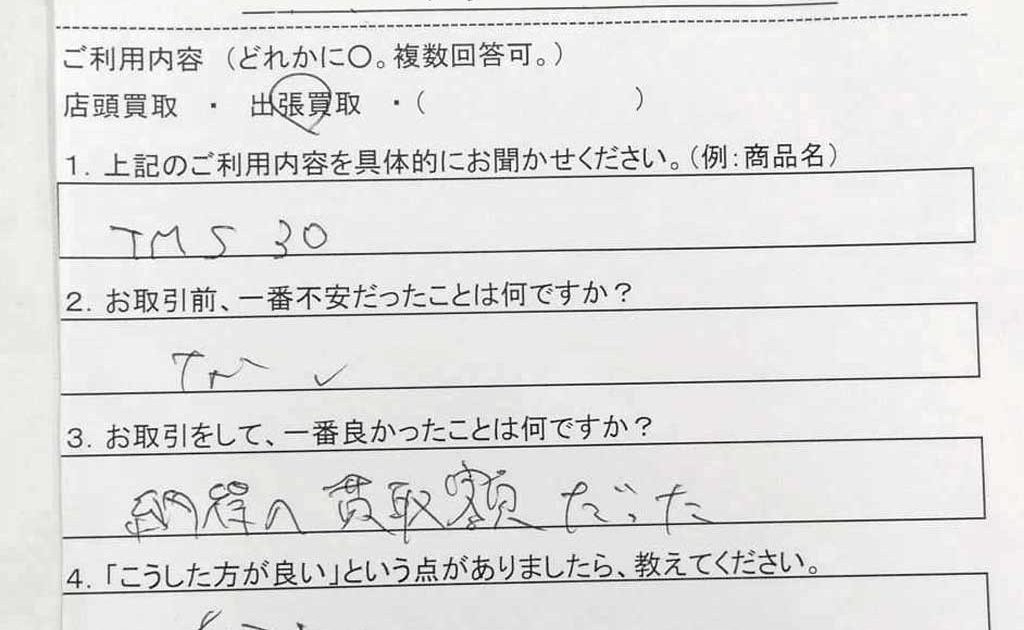 ご利用内容 （どれかに〇。複数回答可。）
店頭買取 ・ 出張買取 ・（ ）
1．上記のご利用内容を具体的にお聞かせください。（例：商品名）
TMS 30
2．お取引前、一番不安だったことは何ですか？
3．お取引をして、一番良かったことは何ですか？
納得の買取額だった
4．「こうした方が良い」という点がありましたら、教えてください。